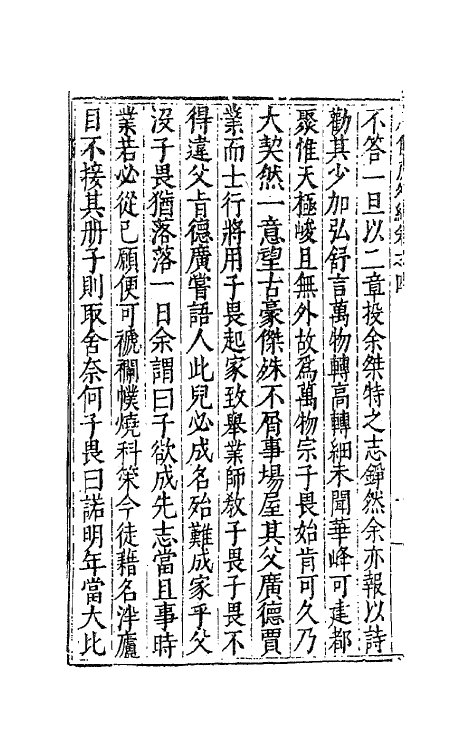 不答一旦以二章投余傑特之志錚然余亦報以詩
勸其少加弘舒言萬物轉高轉細未聞華峰可建都
聚惟天極峻且無外故爲萬物宗子畏始肯可久乃
大契然一意望古豪傑殊不屑事場屋其父廣德賈
業而士行將用子畏起家致舉業師教子畏子畏不
得違父旨德廣嘗語人此兒必成名殆難成家乎父
沒子畏猶落落一日余謂曰子欲成先志當且事時
業若必從己願便可褫襴幞燒科策今徒藉名泮廬
目不接其册子則取舍奈何子畏曰諾明年當大比